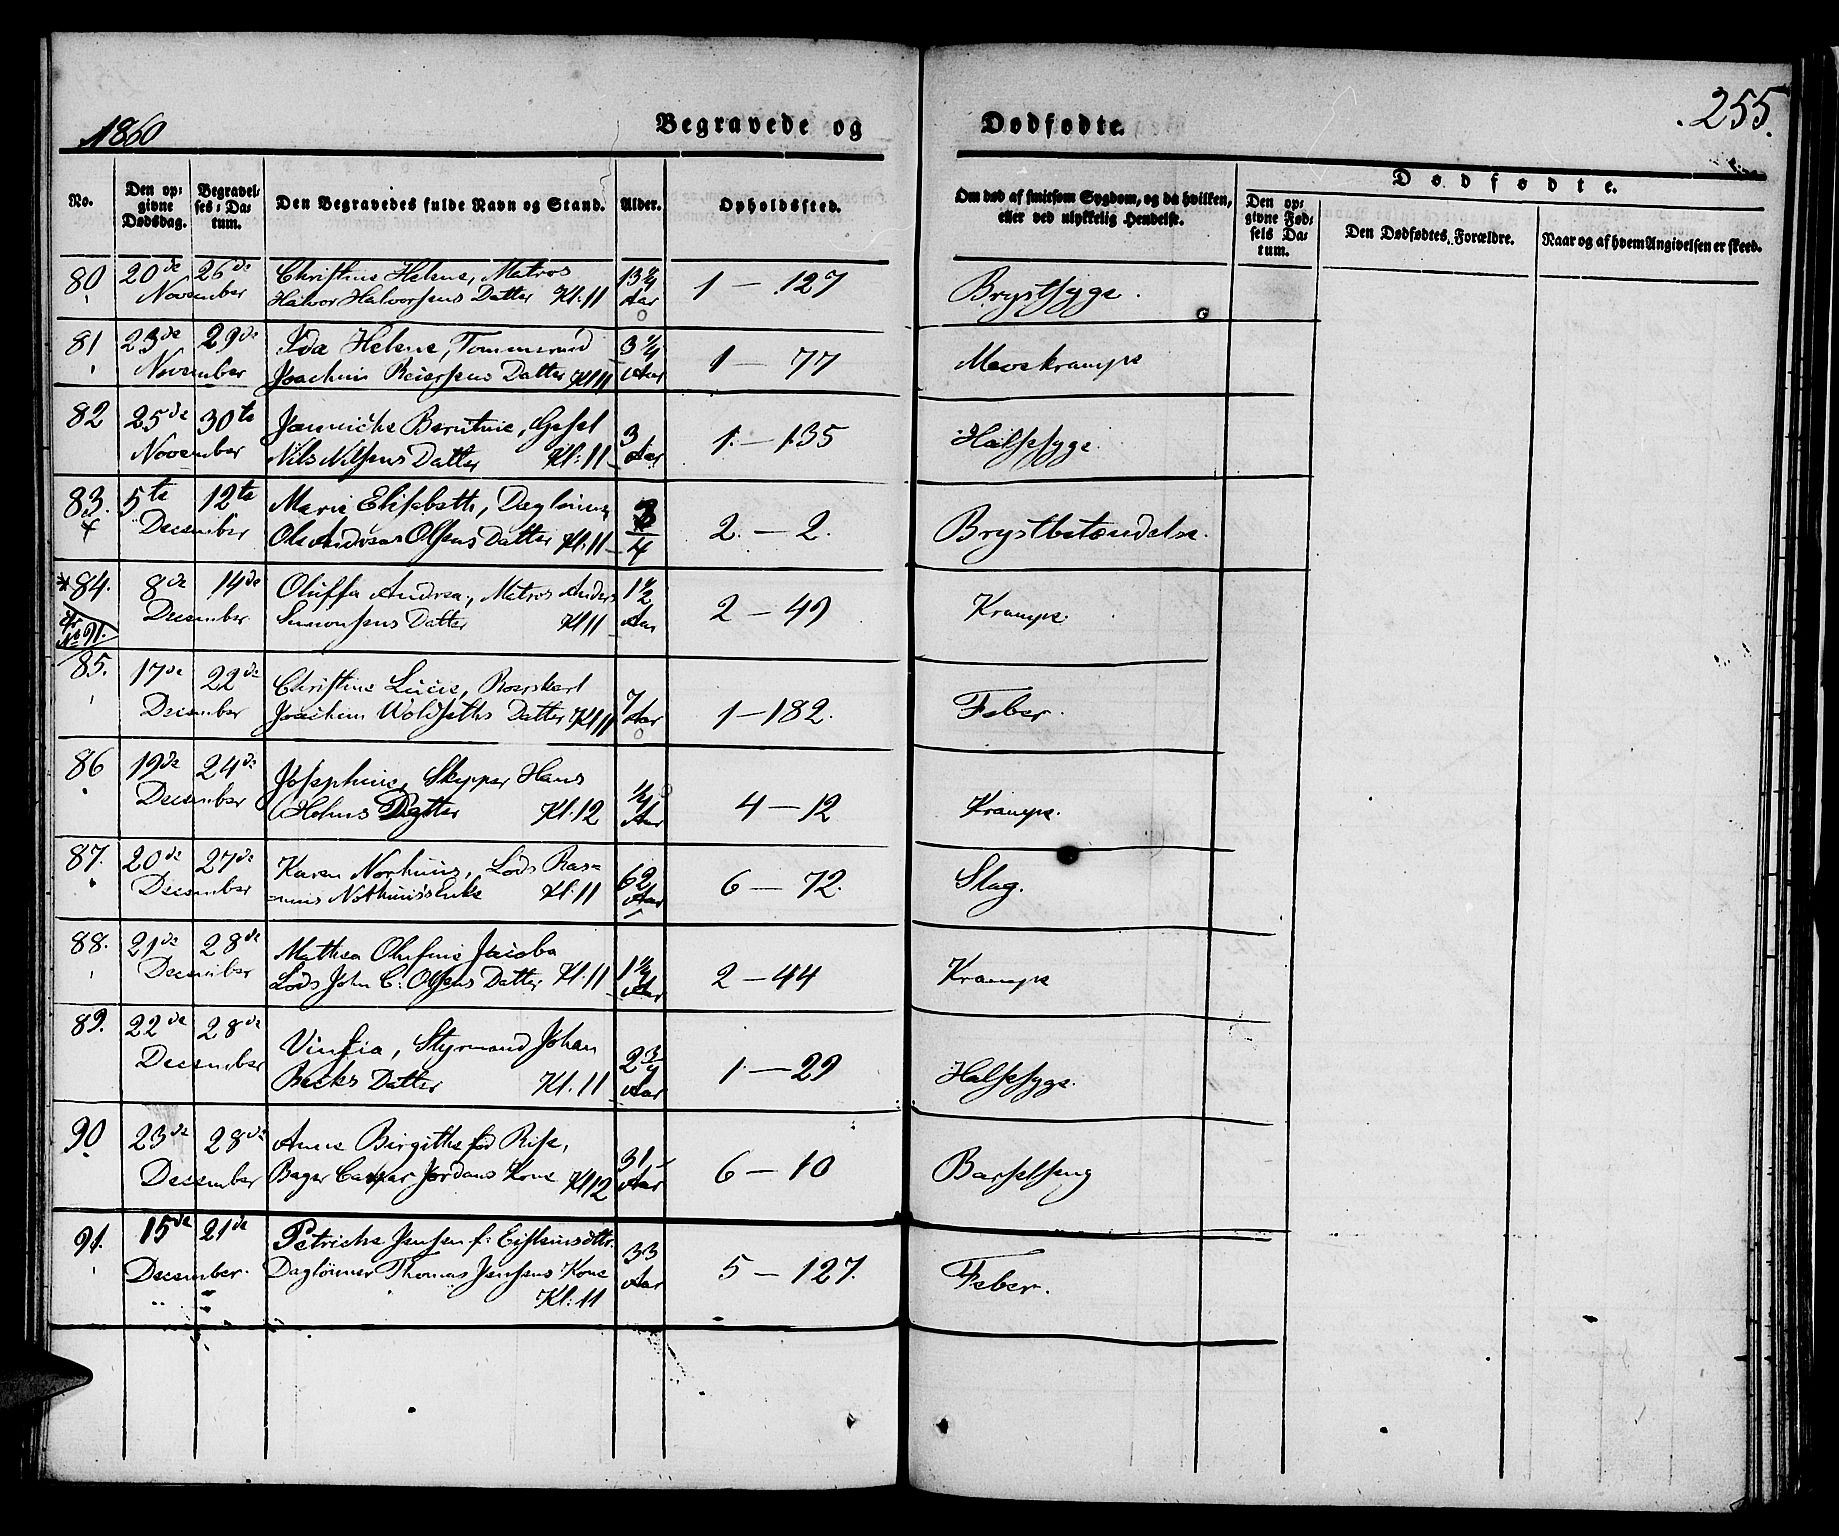 1860
Begravede og Dødfødte.
255.
No.
Den opgivne Dødsdag.
Begravelses-Datum.
Den Begravedes fulde Navn og Stand.
Alder.
Opholdssted.
Om død af smitsom Sygdom, og da hvilken, eller ved ulykkelig Hendelse.
Dødfødte.
Den opgivne Fødsels Datum.
Den Dødfødtes Forældre.
Naar og af hvem Angivelsen er skeed.
80 20de 26de Christine Helene, Matros 13 1/4
November Halvor Halvorsens Datter Kl. 11 Aar 1 — 127 Brystsyge.
81 23de 29de Ida Helene, Tømmermd 3 1/4
November Joachim Reiersens Datter Kl 11 Aar 1 — 77 Mavekrampe
82 25de 30te Janniche Berntine, Gesel 3
November Nils Nilsens Datter Kl: 11 Aar 1. — 135 Halssyge.
83. 5te 12te Marie Elisabeth, Daglønner 3/4
December Ole Andreas Olsens Datter Kl. 11 2. — 2. Brystbetændelse.
84. 8de 14de Oluffa Andrea, Matros Anders 1 1/2
December Simonsens Datter Kl 11 Aar 2 — 49 Krampe.
No 91.
85. 17de 22de Christine Lucie, 7
December Joachim Woldseths Datter Kl 11 Aar 1 — 182. Feber.
86 19de 24de Josephine, Skipper Hans 1/4
December Holms Datter Kl. 12 Aar 4 — 12 Krampe.
87. 20de 27de Karen Northuus, Lods Ras= 62
December =mus Northuus's Enke Kl: 11 Aar 6 — 72. Slag.
88. 21de 28de Mathea Olufine Jacoba 1 1/4
December Lods John C. Olsens Datter Kl 11 Aar 2 — 44 Krampe
89. 22de 28de Vinsia, Styrmand Johan 2 3/4
December Becks Datter Kl. 11 Aar 1. — 29 Halssyge.
90 23de 28de Anne Birgithe fød Rise, 31
December Bager Caspar Jordans Kone Kl 12 Aar 6 — 10 Barselseng
91. 15de 21de Petriche Jensen f. Eisteinsdtr. 33
December. Daglønner Thomas Jensens Kone Aar 5 — 127. Feber.
Kl: 11